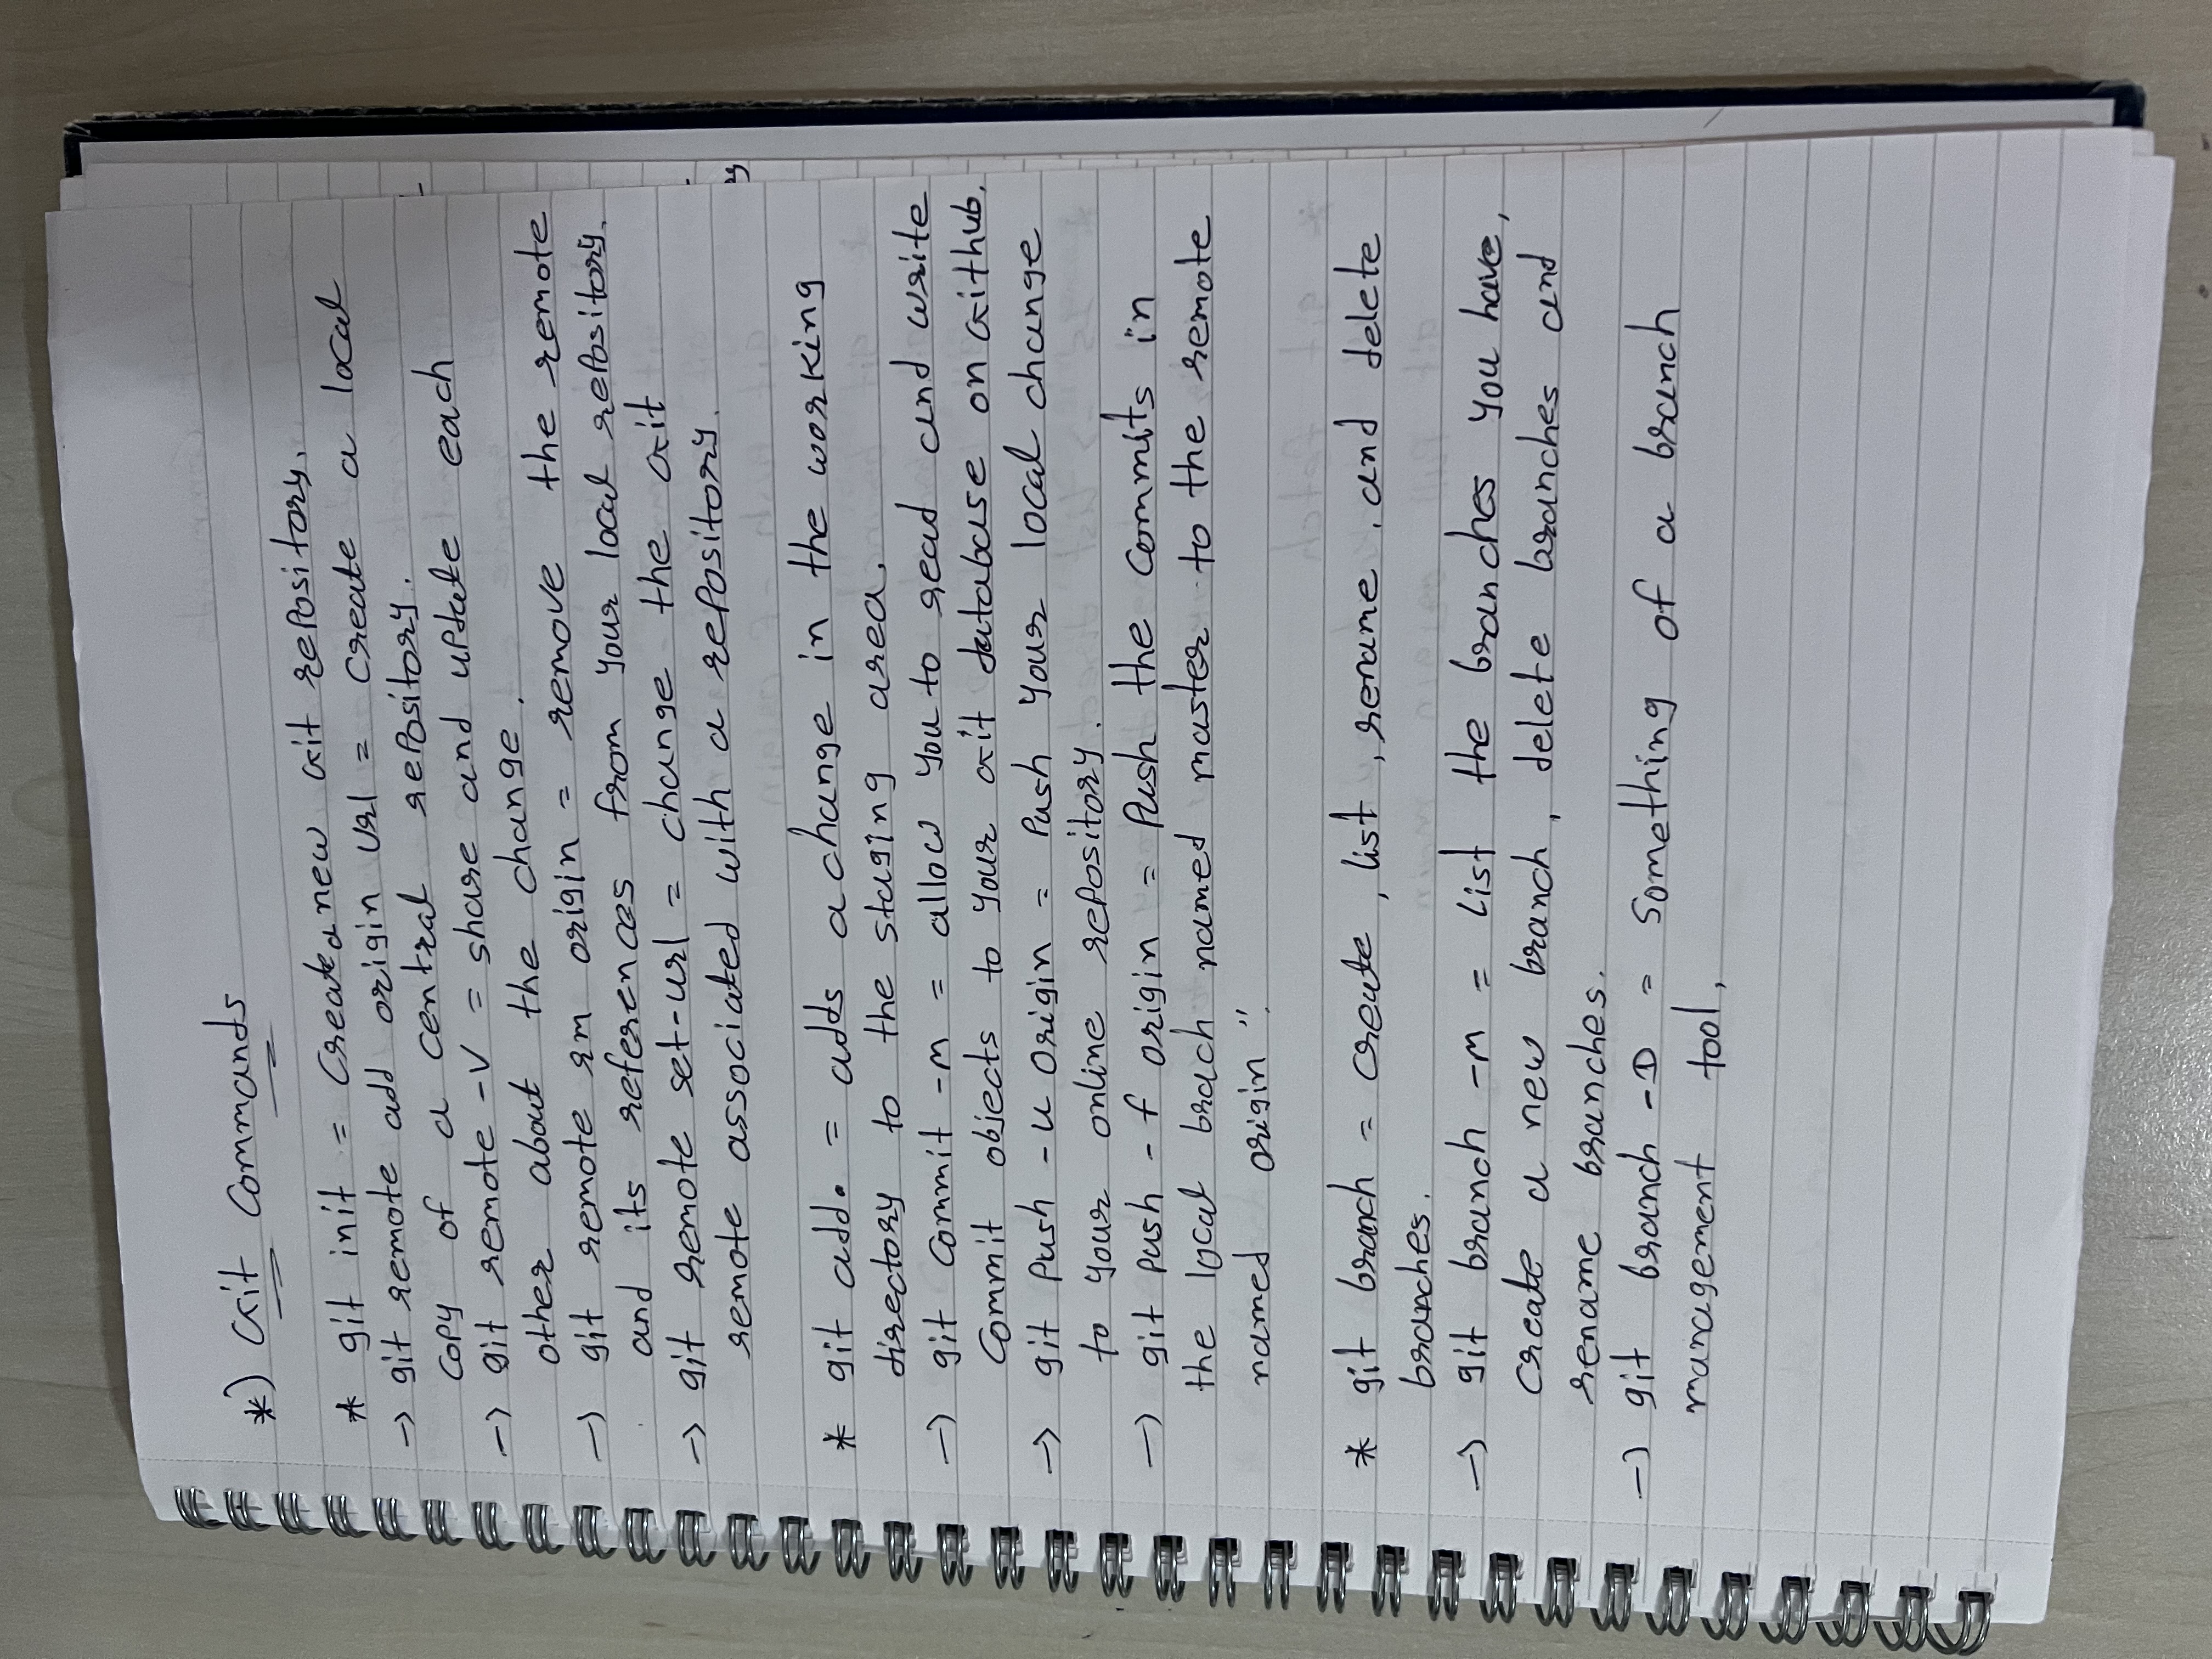 *) Git Commands
* git init = Create a new Git repository.
-> git remote add origin Url = Create a local
copy of a central repository.
-> git remote -V = share and update each
other about the change.
-> git remote rm origin = remove the remote
and its references from your local repository.
-> git remote set-url = change the Git
remote associated with a repository.
* git add. = adds a change in the working
directory to the staging area.
-> git Commit -m = allow you to read and write
Commit objects to your Git database on Github.
-> git Push -u Origin = Push your local change
to your online repository.
-> git push -f origin = Push the Commits in
the local brach named master to the remote
named origin".
* git branch = create, list, rename, and delete
branches.
-> git branch -m = List the branches you have,
Create a new branch, delete branches and
rename branches.
-> git branch -D = Something of a branch
management tool,